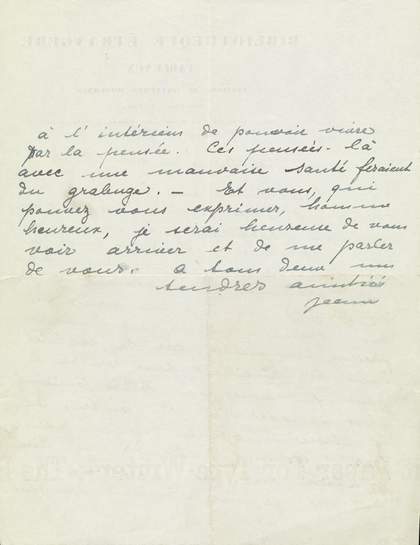 à l'intérieur de pouvoir vivre
par la pensée. Ces pensées-là
avec une mauvaise santé feraient
du grabuge. — Et vous, qui
pouvez vous exprimer, homme
heureux, je serai heureuse de vous
voir arriver et de me parler
de vous. A tous deux mes
tendres amitiés
Jeanne